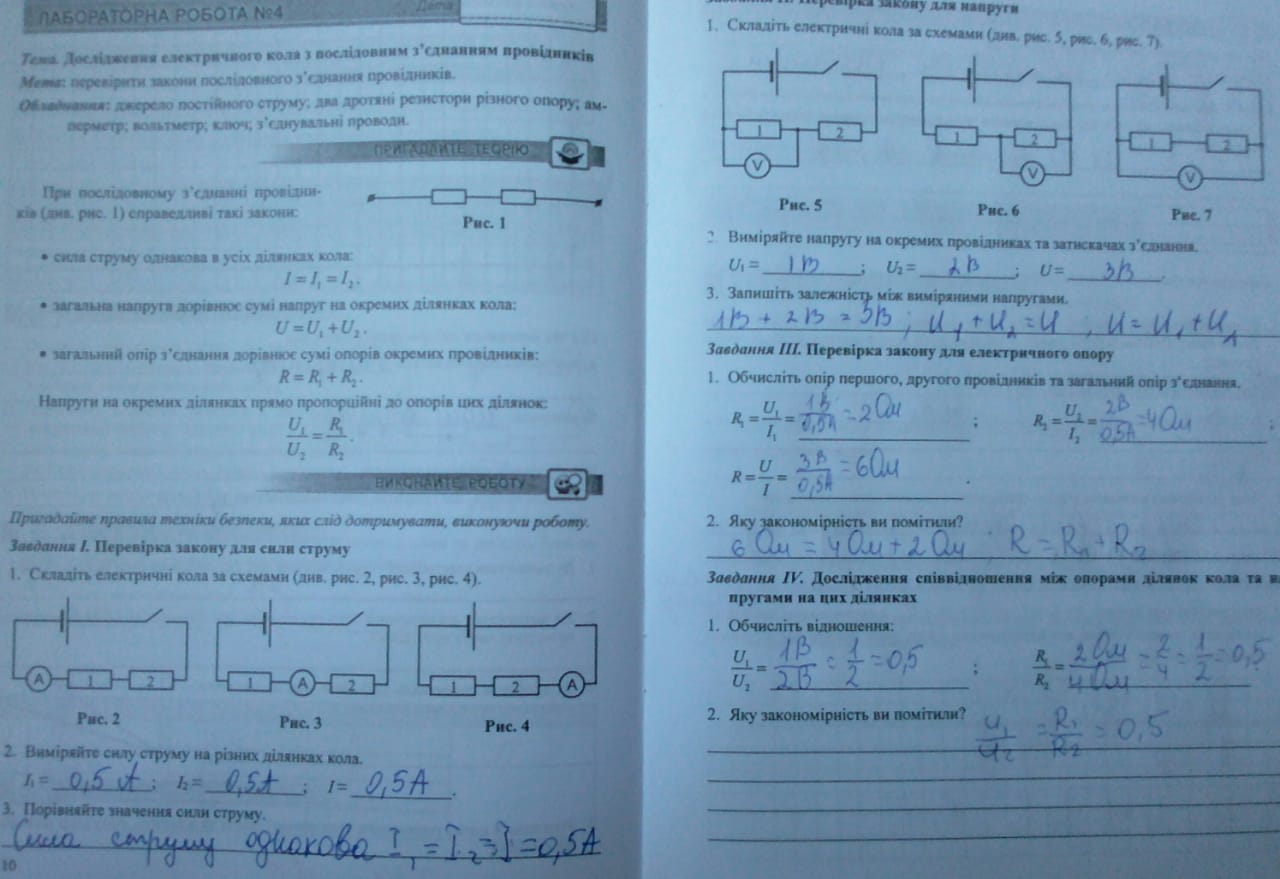 ЛАБОРАТОРНА РОБОТА №4
Дата
Тема. Дослідження електричного кола з послідовним з’єднанням провідників
Мета: перевірити закони послідовного з’єднання провідників.
Обладнання: джерело постійного струму; два дротяні резистори різного опору; ам-
перметр; вольтметр; ключ; з’єднувальні проводи.
ПРИГАДАЙТЕ ТЕОРІЮ
При послідовному з’єднанні провідни-
ків (див. рис. 1) справедливі такі закони:
Рис. 1
• сила струму однакова в усіх ділянках кола:
I = I₁ = I₂.
• загальна напруга дорівнює сумі напруг на окремих ділянках кола:
U = U₁ + U₂.
• загальний опір з’єднання дорівнює сумі опорів окремих провідників:
R = R₁ + R₂.
Напруги на окремих ділянках прямо пропорційні до опорів цих ділянок:
U₁/U₂ = R₁/R₂.
ВИКОНАЙТЕ РОБОТУ
Пригадайте правила техніки безпеки, яких слід дотримувати, виконуючи роботу.
Завдання I. Перевірка закону для сили струму
1. Складіть електричні кола за схемами (див. рис. 2, рис. 3, рис. 4).
A 1 2
1 A 2
1 2 A
Рис. 2 Рис. 3 Рис. 4
2. Виміряйте силу струму на різних ділянках кола.
I₁ = 0,5 А ; I₂ = 0,5А ; I = 0,5А .
3. Порівняйте значення сили струму.
Сила струму однакова I₁ = I₂ = I = 0,5А
10
Перевірка закону для напруги
1. Складіть електричні кола за схемами (див. рис. 5, рис. 6, рис. 7).
1 2 V
1 2 V
1 2 V
Рис. 5 Рис. 6 Рис. 7
2. Виміряйте напругу на окремих провідниках та затискачах з’єднання.
U₁ = 1В ; U₂ = 2В ; U = 3В .
3. Запишіть залежність між виміряними напругами.
1В + 2В = 3В ; U₁ + U₂ = U ; U = U₁ + U₂
Завдання III. Перевірка закону для електричного опору
1. Обчисліть опір першого, другого провідників та загальний опір з’єднання.
R₁ = U₁/I₁ = 1В/0,5А = 2 Ом ; R₂ = U₂/I₂ = 2В/0,5А = 4Ом ;
R = U/I = 3В/0,5А = 6Ом .
2. Яку закономірність ви помітили?
6 Ом = 4 Ом + 2 Ом R = R₁ + R₂
Завдання IV. Дослідження співвідношення між опорами ділянок кола та на
пругами на цих ділянках
1. Обчисліть відношення:
U₁/U₂ = 1В/2В = 1/2 = 0,5 ; R₁/R₂ = 2 Ом/4 Ом = 2/4 = 1/2 = 0,5
2. Яку закономірність ви помітили?
U₁/U₂ = R₁/R₂ = 0,5